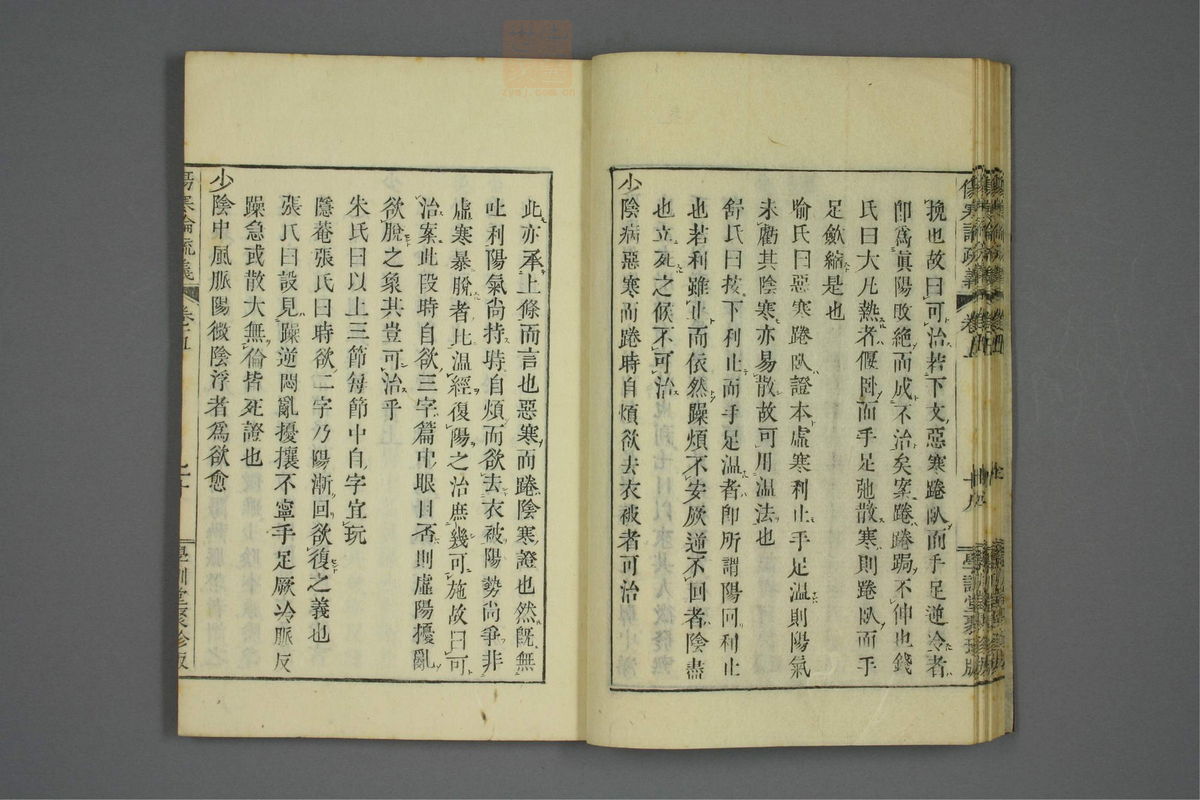 挽也故曰可治若下文惡寒踡臥而手足逆冷者
卽爲眞陽敗絶而成不治矣案踡踡跼不伸也錢
氏曰大凡熱者偃臥而手足弛散寒則踡臥而手
足斂縮是也
喻氏曰惡寒踡臥證本虛寒利止手足溫則陽氣
未虧其陰寒亦易散故可用溫法也
舒氏曰按下利止而手足溫者卽所謂陽回利止
也若利雖止而依然躁煩不安厥逆不回者陰盡
也立死之候不可治
少陰病惡寒而踡時自煩欲去衣被者可治
傷寒論疏義
學訓堂聚珍版
此亦承上條而言也惡寒而踡陰寒證也然旣無
吐利陽氣尙持時自煩而欲去衣被陽勢尙爭非
虛寒暴脫者比溫經復陽之治庶幾可施故曰可
治案此段時自欲三字篇中眼目否則虛陽擾亂
欲脫之象其豈可治乎
朱氏曰以上三節每節中自字宜玩
隱菴張氏曰時欲二字乃陽漸回欲復之義也
張氏曰設見躁逆悶亂擾攘不寧手足厥冷脈反
躁急或散大無倫皆死證也
少陰中風脈陽微陰浮者爲欲愈
傷寒論疏義
卷五
學訓堂聚珍版